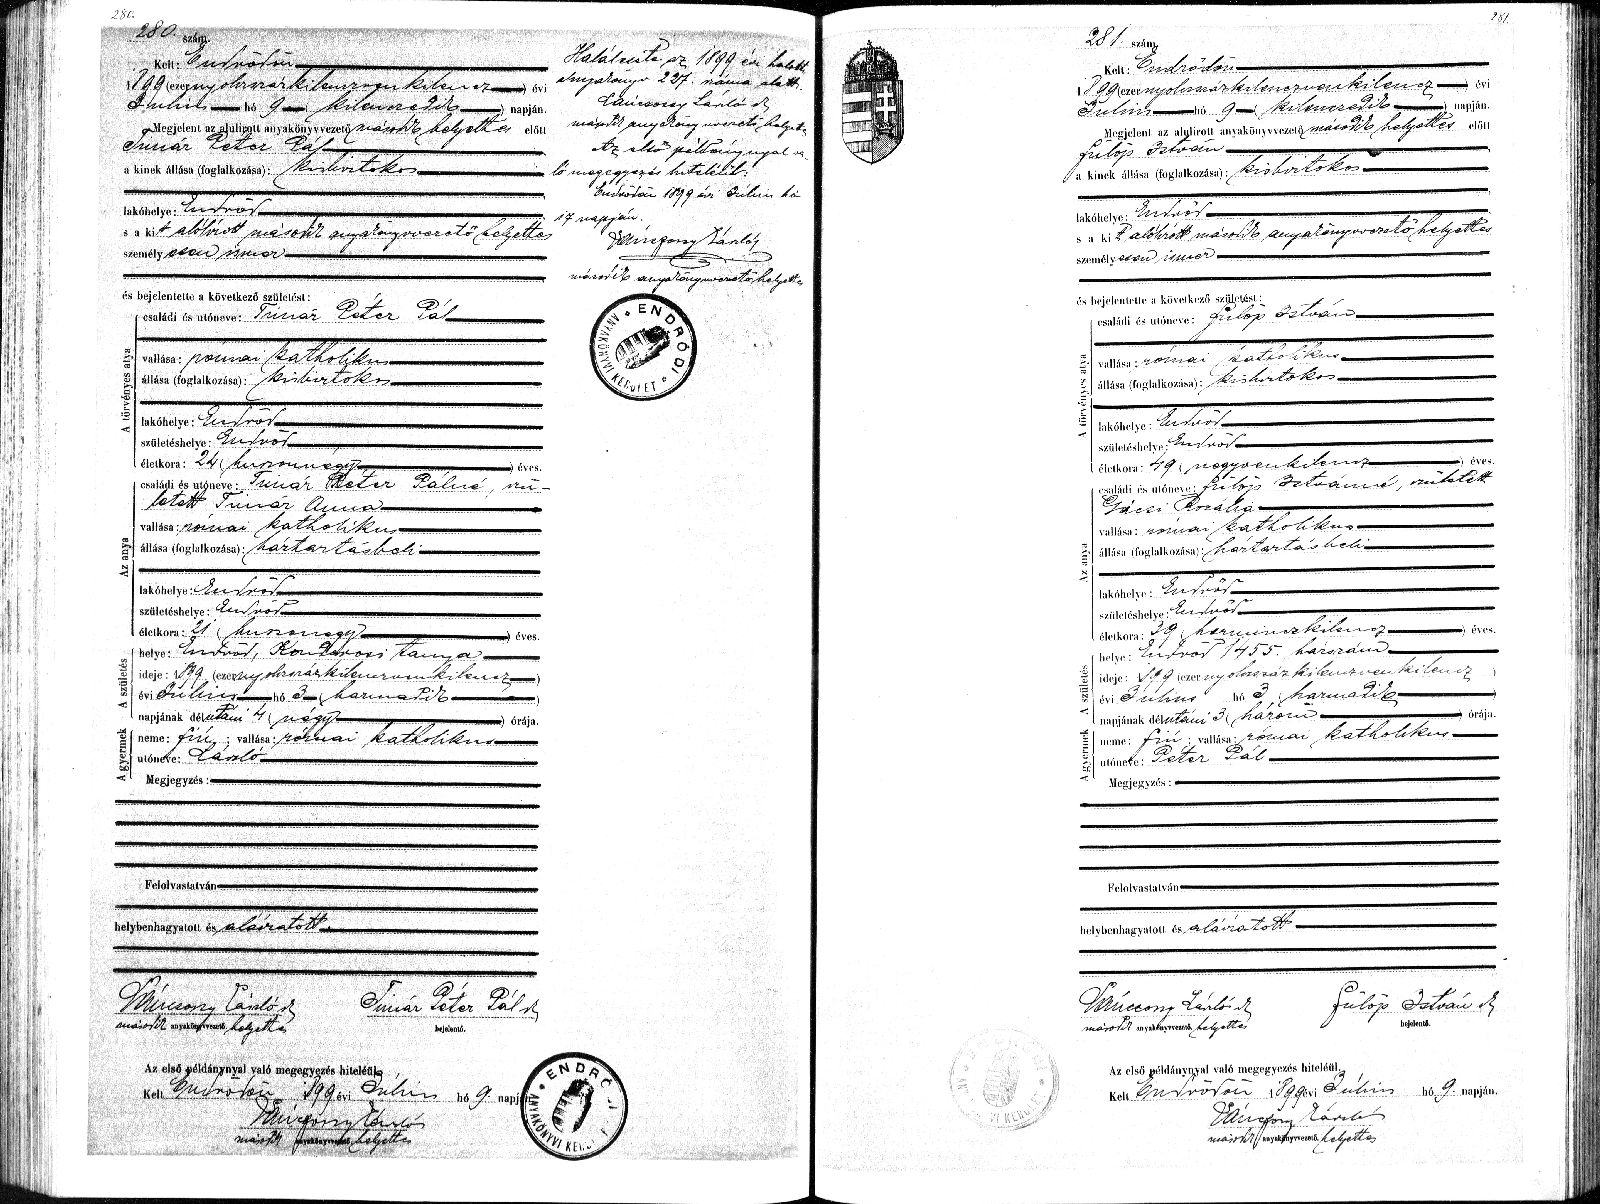 280.
280. szám.
Kelt: Endrődön
1899 (ezernyolcszázkilenczvenkilencz) évi
Július hó 9 (kilenczedik) napján.
Megjelent az alulirott anyakönyvvezető második helyettes előtt
Timár Péter Pál
a kinek állása (foglalkozása): kisbirtokos
lakóhelye: Endrőd
s a kit alólirott második anyakönyvvezető helyettes
személyesen ismer
és bejelentette a következő születést:
A törvényes atya
családi és utóneve: Timár Péter Pál
vallása: római katholikus
állása (foglalkozása): kisbirtokos
lakóhelye: Endrőd
születéshelye: Endrőd
életkora: 24 (huszonnégy) éves.
Az anya
családi és utóneve: Timár Péter Pálné, szü-
letett Timár Anna
vallása: római katholikus
állása (foglalkozása): háztartásbeli
lakóhelye: Endrőd
születéshelye: Endrőd
életkora: 21 ( ) éves.
A születés
helye: Endrőd, Kondorosi tanya
ideje: 1899 (ezernyolcszázkilenczvenkilencz)
évi Július hó 3 (harmadik)
napjának délutáni 4 (négy) órája.
A gyermek
neme: fiú; vallása: római katholikus
utóneve: László
Megjegyzés:
Felolvastatván
helybenhagyatott és aláiratott.
László Timár Péter Pál
második anyakönyvvezető helyettes bejelentő.
Az első példánynyal való megegyezés hiteléül.
Kelt Endrődön 1899 évi Július hó 9 napján.
László
második anyakönyvvezető helyettes
ENDRŐDI
ANYAKÖNYVI KERÜLET
Haláleset az 1899 évi halott
anyakönyv 227. száma alatt.
László
második anyakönyvvezető helyettes
Az első példánynyal va-
ló megegyezés hiteléül.
Endrődön 1899 évi Július hó
17 napján.
László
második anyakönyvvezető helyettes
ENDRŐDI
ANYAKÖNYVI KERÜLET
281.
281. szám.
Kelt: Endrődön
1899 (ezernyolcszázkilenczvenkilencz) évi
Július hó 9 (kilenczedik) napján.
Megjelent az alulirott anyakönyvvezető második helyettes előtt
Fülöp István
a kinek állása (foglalkozása): kisbirtokos
lakóhelye: Endrőd
s a kit alólirott második anyakönyvvezető helyettes
személyesen ismer
és bejelentette a következő születést:
A törvényes atya
családi és utóneve: Fülöp István
vallása: római katholikus
állása (foglalkozása): kisbirtokos
lakóhelye: Endrőd
születéshelye: Endrőd
életkora: 49 (negyvenkilencz) éves.
Az anya
családi és utóneve: Fülöp Istvánné, született
Gácsi Rozália
vallása: római katholikus
állása (foglalkozása): háztartásbeli
lakóhelye: Endrőd
születéshelye: Endrőd
életkora: 39 (harminczkilencz) éves.
A születés
helye: Endrőd 1455. házszám
ideje: 1899 (ezernyolcszázkilenczvenkilencz)
évi Július hó 3 (harmadik)
napjának délutáni 3 (három) órája.
A gyermek
neme: fiú; vallása: római katholikus
utóneve: Péter Pál
Megjegyzés:
Felolvastatván
helybenhagyatott és aláiratott
László Fülöp István
második anyakönyvvezető helyettes bejelentő.
Az első példánynyal való megegyezés hiteléül.
Kelt Endrődön 1899 évi Július hó 9 napján.
László
második anyakönyvvezető helyettes